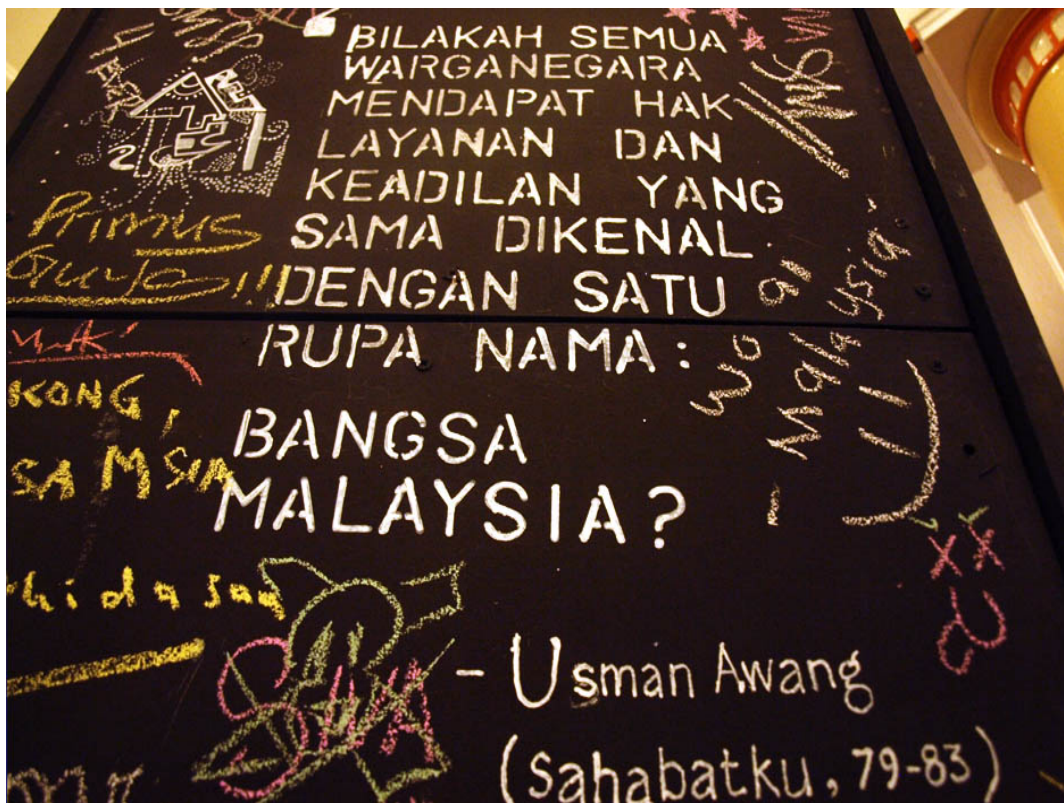 BILAKAH SEMUA
WARGANEGARA
MENDAPAT HAK
LAYANAN DAN
KEADILAN YANG
SAMA DIKENAL
DENGAN SATU
RUPA NAMA:
BANGSA
MALAYSIA?
- Usman Awang
(Sahabatku, 79-83)
Primus
wo ai
- Malaysia -
KONG,
SA MSIA